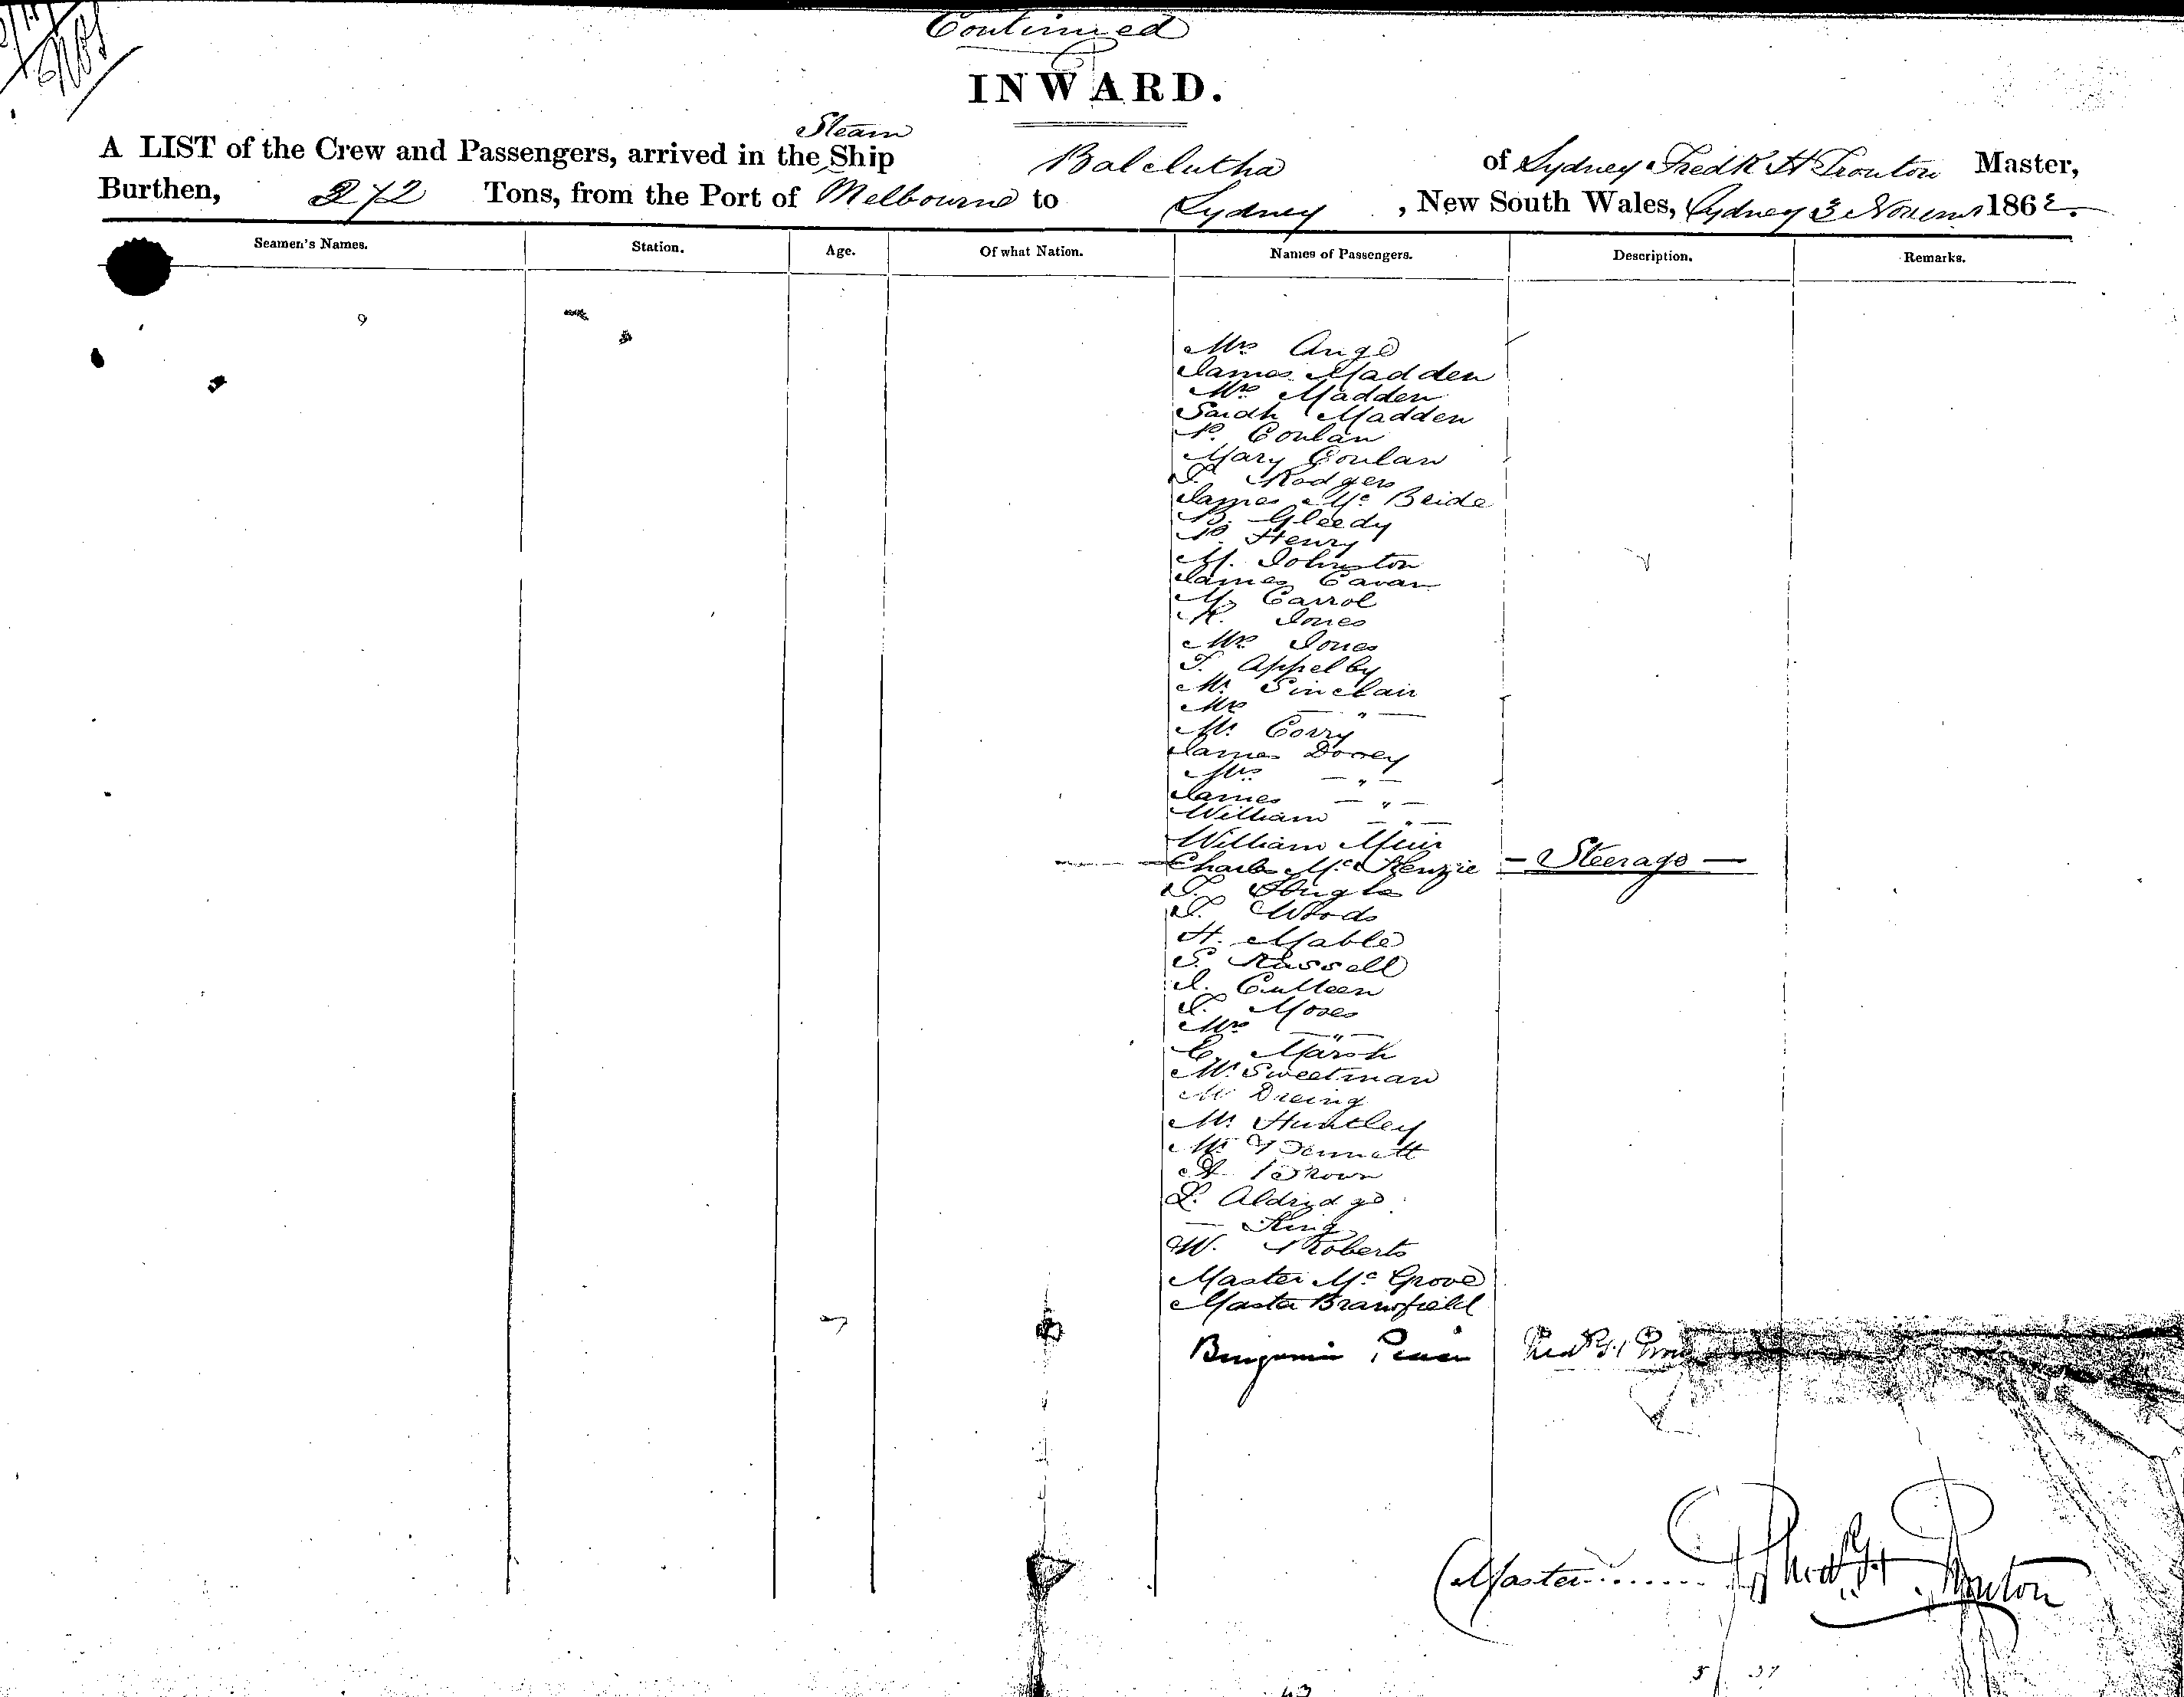 Continued
INWARD.
A LIST of the Crew and Passengers, arrived in the Steam Ship Balclutha of Sydney Fredk H Trouton Master,
Burthen, 272 Tons, from the Port of Melbourne to Sydney, New South Wales, Sydney 3 Novemr 1862.
Seamen's Names. Station. Age. Of what Nation. Names of Passengers. Description. Remarks.
Mrs Ange
James Madden
Mrs Madden
Sarah Madden
P. Conlan
Mary Conlan
T. Rodgers
James Mc Bride
B. Gleedy
P. Henry
M. Johnston
James Cavan
M. Carrol
R. Jones
Mrs Jones
T. Appelby
Mr Sinclair
Mrs — " —
Mr Corry
James Dorrey
Mrs — " —
James — " —
William — " —
William Muir
Charles Mc Kenzie — Steerage —
T. Hughes
T. Woods
H. Mable
S. Russell
J. Culleen
T. Moses
Mrs — " —
C. Marsh
Mr Sweetman
Mr Dreing
Mr Huntley
Mr Bennett
A Brown
L. Aldridge
— King
W. Roberts
Master Mc Grove
Master Bransfield
Benjamin
Master....... Fredk H Trouton